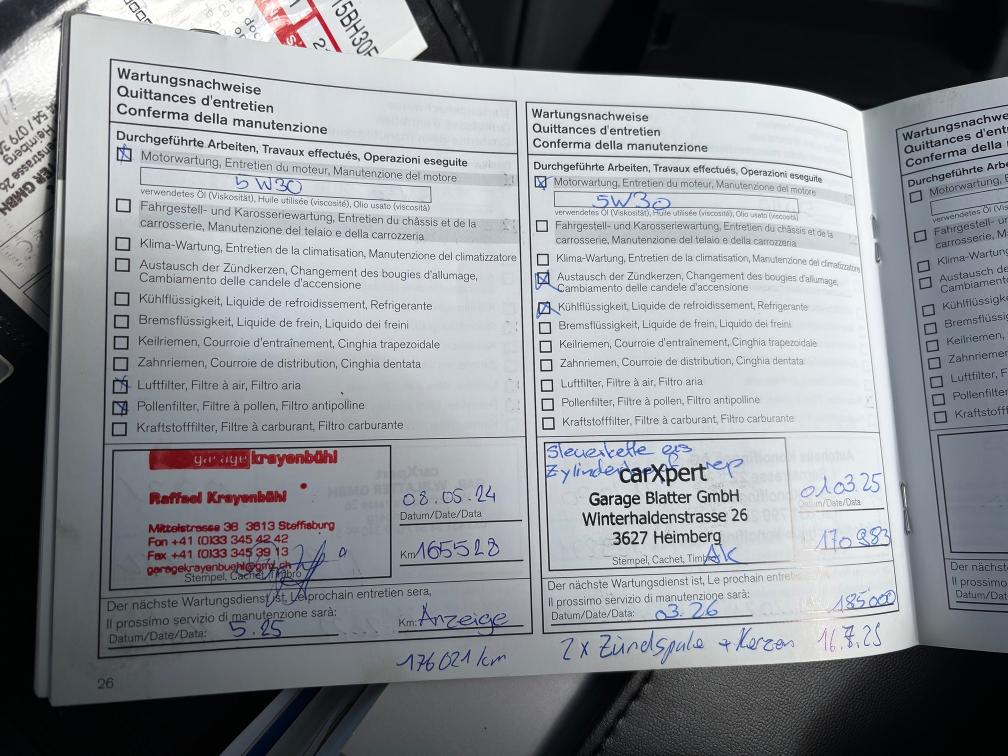 15BH30F
Wartungsnachweise
Quittances d'entretien
Conferma della manutenzione
Durchgeführte Arbeiten, Travaux effectués, Operazioni eseguite
Motorwartung, Entretien du moteur, Manutenzione del motore
5W30
verwendetes Öl (Viskosität), Huile utilisée (viscosité), Olio usato (viscosità)
Fahrgestell- und Karosseriewartung, Entretien du châssis et de la
carrosserie, Manutenzione del telaio e della carrozzeria
Klima-Wartung, Entretien de la climatisation, Manutenzione del climatizzatore
Austausch der Zündkerzen, Changement des bougies d'allumage,
Cambiamento delle candele d'accensione
Kühlflüssigkeit, Liquide de refroidissement, Refrigerante
Bremsflüssigkeit, Liquide de frein, Liquido dei freini
Keilriemen, Courroie d'entraînement, Cinghia trapezoidale
Zahnriemen, Courroie de distribution, Cinghia dentata
Luftfilter, Filtre à air, Filtro aria
Pollenfilter, Filtre à pollen, Filtro antipolline
Kraftstofffilter, Filtre à carburant, Filtro carburante
garage krayenbühl
Raffael Krayenbühl
Mittelstrasse 38 3613 Steffisburg
Fon +41 (0)33 345 42 42
Fax +41 (0)33 345 39 13
garagekrayenbuehl@gmx.ch
Stempel, Cachet, Timbro
08.05.24
Datum/Date/Data:
Km: 165528
Der nächste Wartungsdienst ist, Le prochain entretien sera,
Il prossimo servizio di manutenzione sarà:
Datum/Date/Data: 5.25
Km: Anzeige
176021 km
26
Wartungsnachweise
Quittances d'entretien
Conferma della manutenzione
Durchgeführte Arbeiten, Travaux effectués, Operazioni eseguite
Motorwartung, Entretien du moteur, Manutenzione del motore
5W30
verwendetes Öl (Viskosität), Huile utilisée (viscosité), Olio usato (viscosità)
Fahrgestell- und Karosseriewartung, Entretien du châssis et de la
carrosserie, Manutenzione del telaio e della carrozzeria
Klima-Wartung, Entretien de la climatisation, Manutenzione del climatizzatore
Austausch der Zündkerzen, Changement des bougies d'allumage,
Cambiamento delle candele d'accensione
Kühlflüssigkeit, Liquide de refroidissement, Refrigerante
Bremsflüssigkeit, Liquide de frein, Liquido dei freini
Keilriemen, Courroie d'entraînement, Cinghia trapezoidale
Zahnriemen, Courroie de distribution, Cinghia dentata
Luftfilter, Filtre à air, Filtro aria
Pollenfilter, Filtre à pollen, Filtro antipolline
Kraftstofffilter, Filtre à carburant, Filtro carburante
Steuerkette ers
rep
carXpert
Garage Blatter GmbH
Winterhaldenstrasse 26
3627 Heimberg
Stempel, Cachet, Timbro
AK
010325
Datum/Date/Data:
170983
Der nächste Wartungsdienst ist, Le prochain entretien
Il prossimo servizio di manutenzione sarà:
Datum/Date/Data: 03.26
185000
2x Zündspule + Kerzen 16.7.25
Wartungsnachwe
Quittances d'entre
Conferma della
Durchgeführte Arbe
Motorwartung, E
verwendetes Öl (Vis
Fahrgestell- und
carrosserie, Man
Klima-Wartung,
Austausch de
Cambiamento
Kühlflüssigke
Bremsflüssig
Keilriemen, C
Zahnriemen
Luftfilter, Fil
Pollenfilter,
Kraftstofffi
Der nächst
Il prossimo
Datum/Date